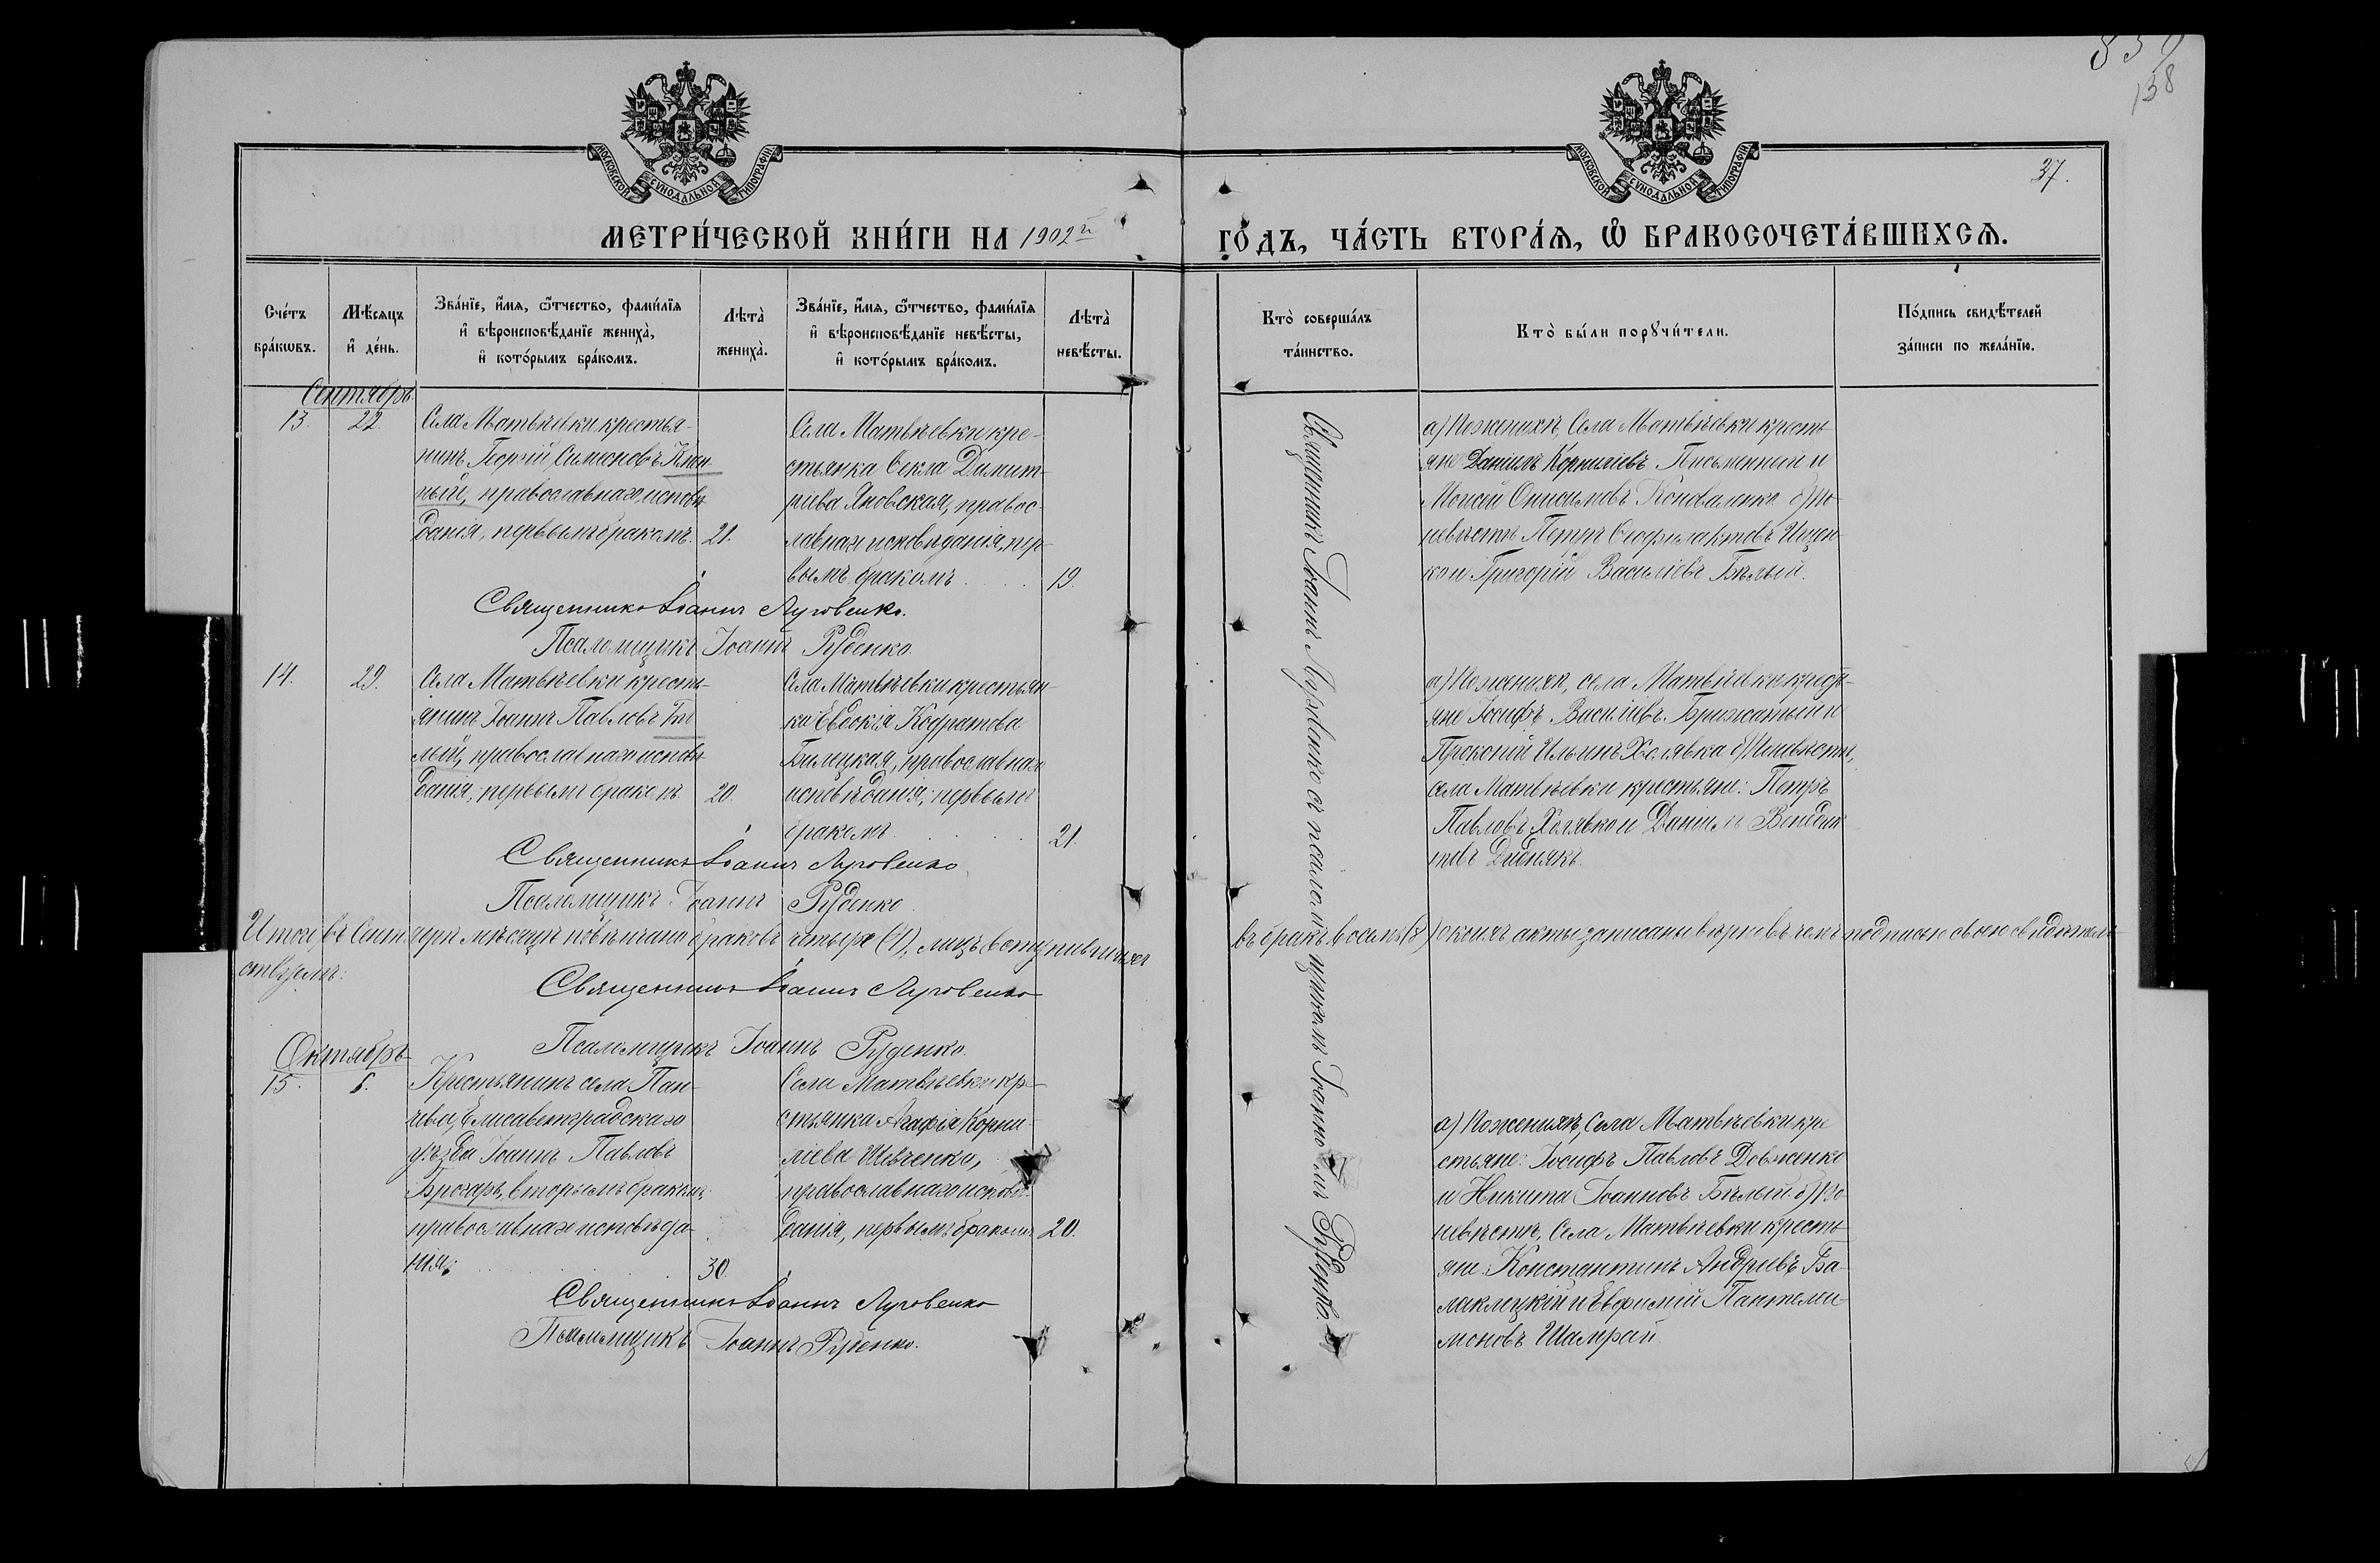 839
138
37.
МОСКОВСКОЙ СѴНОДАЛЬНОЙ ТИПОГРАФІИ
МОСКОВСКОЙ СѴНОДАЛЬНОЙ ТИПОГРАФІИ
МЕТРИ́ЧЕСКОЙ КНИ́ГИ НА 1902й ГО́ДЪ, ЧА́СТЬ ВТОРА́Ѧ, Ѡ҆ БРАКОСОЧЕТА́ВШИХСѦ.
Сче́тъ бра́кѡвъ.
Мѣ́сѧцъ и҆ де́нь.
Зва́нїе, и҆́мѧ, ѻ҆́тчество, фами́лїѧ
и҆ вѣроисповѣ́данїе жениха̀,
и҆ кото́рымъ бра́комъ.
Лѣта̀ жениха̀.
Зва́нїе, и҆́мѧ, ѻ҆́тчество, фами́лїѧ
и҆ вѣроисповѣ́данїе невѣ́сты,
и҆ кото́рымъ бра́комъ.
Лѣта̀ невѣ́сты.
Кто̀ соверша́лъ та́инство.
Кто̀ бы́ли порꙋчи́тели.
По́дпись свидѣ́телей за́писи по жела́нїю.
Сентябрь
13. 22.
Села Матвѣевки крестья-
нинъ Георгій Симеоновъ
ный, православнаго исповѣ-
данія, первымъ бракомъ. 21.
Села Матвѣевки кре-
стьянка Ѳекла Димит-
ріева Яновская, правос-
лавнаго исповѣданія, пер-
вымъ бракомъ . . . 19.
а) По женихѣ, Села Матвѣевки кресть-
яне Даніилъ Корниліевъ Письменный и
Моисей Онисимовъ Коноваленко. б) По
невѣстѣ Петръ Ѳеофилактовъ Ищен-
ко и Григорій Василіевъ Бѣлый.
Священникъ Іоаннъ Луговенко.
Псаломщикъ Іоаннъ Руденко
14. 29.
Села Матвѣевки кресть-
янинъ Іоаннъ Павловъ Бѣ-
лый, православнаго исповѣ-
данія, первымъ бракомъ 20.
Села Матвѣевки крестьян-
ка Евдокія Кодратова
Билецкая, православнаго
исповѣданія, первымъ
бракомъ . . . 21.
а) По женихѣ, села Матвѣевки кресть-
яне Іосифъ Василіевъ Брижатый и
Прокопій Ильинъ Холявка б) По невѣстѣ,
села Матвѣевки крестьяне: Петръ
Павловъ Холявко и Даніилъ Венедик-
товъ Диднякъ.
Священникъ Іоаннъ Луговенко
Псаломщикъ Іоаннъ Руденко.
Итого въ Сентябрѣ мѣсяцѣ повѣнчано браковъ четыре (4), лицъ вступившихъ въ бракъ восемь (8) о коихъ акты записаны вѣрно въ чемъ подписью своею свидѣтель-
ствуемъ:
Священникъ Іоаннъ Луговенко
Псаломщикъ Іоаннъ Руденко.
Октябрь
15. 6.
Крестьянинъ села Пан-
чева, Елисаветградскаго
уѣзда Іоаннъ Павловъ
Брогаръ, вторымъ бракомъ,
православнаго исповѣда-
нія. . . . 30.
Села Матвѣевки кре-
стьянка Агафія Корни-
ліева Шевченко,
православнаго исповѣ-
данія, первымъ бракомъ 20.
а) По женихѣ, Села Матвѣевки кре-
стьяне: Іосифъ Павловъ Довженко
и Никита Іоанновъ Бѣлый. б) По
невѣстѣ, Села Матвѣевки кресть-
яне: Константинъ Андреевъ Ба-
лаклецкій и Евфимій Пантели-
моновъ Шамрай.
Священникъ Іоаннъ Луговенко
Псаломщикъ Іоаннъ Руденко.
Священникъ Іоаннъ Луговенко съ псаломщикомъ Іоанномъ Руденко.